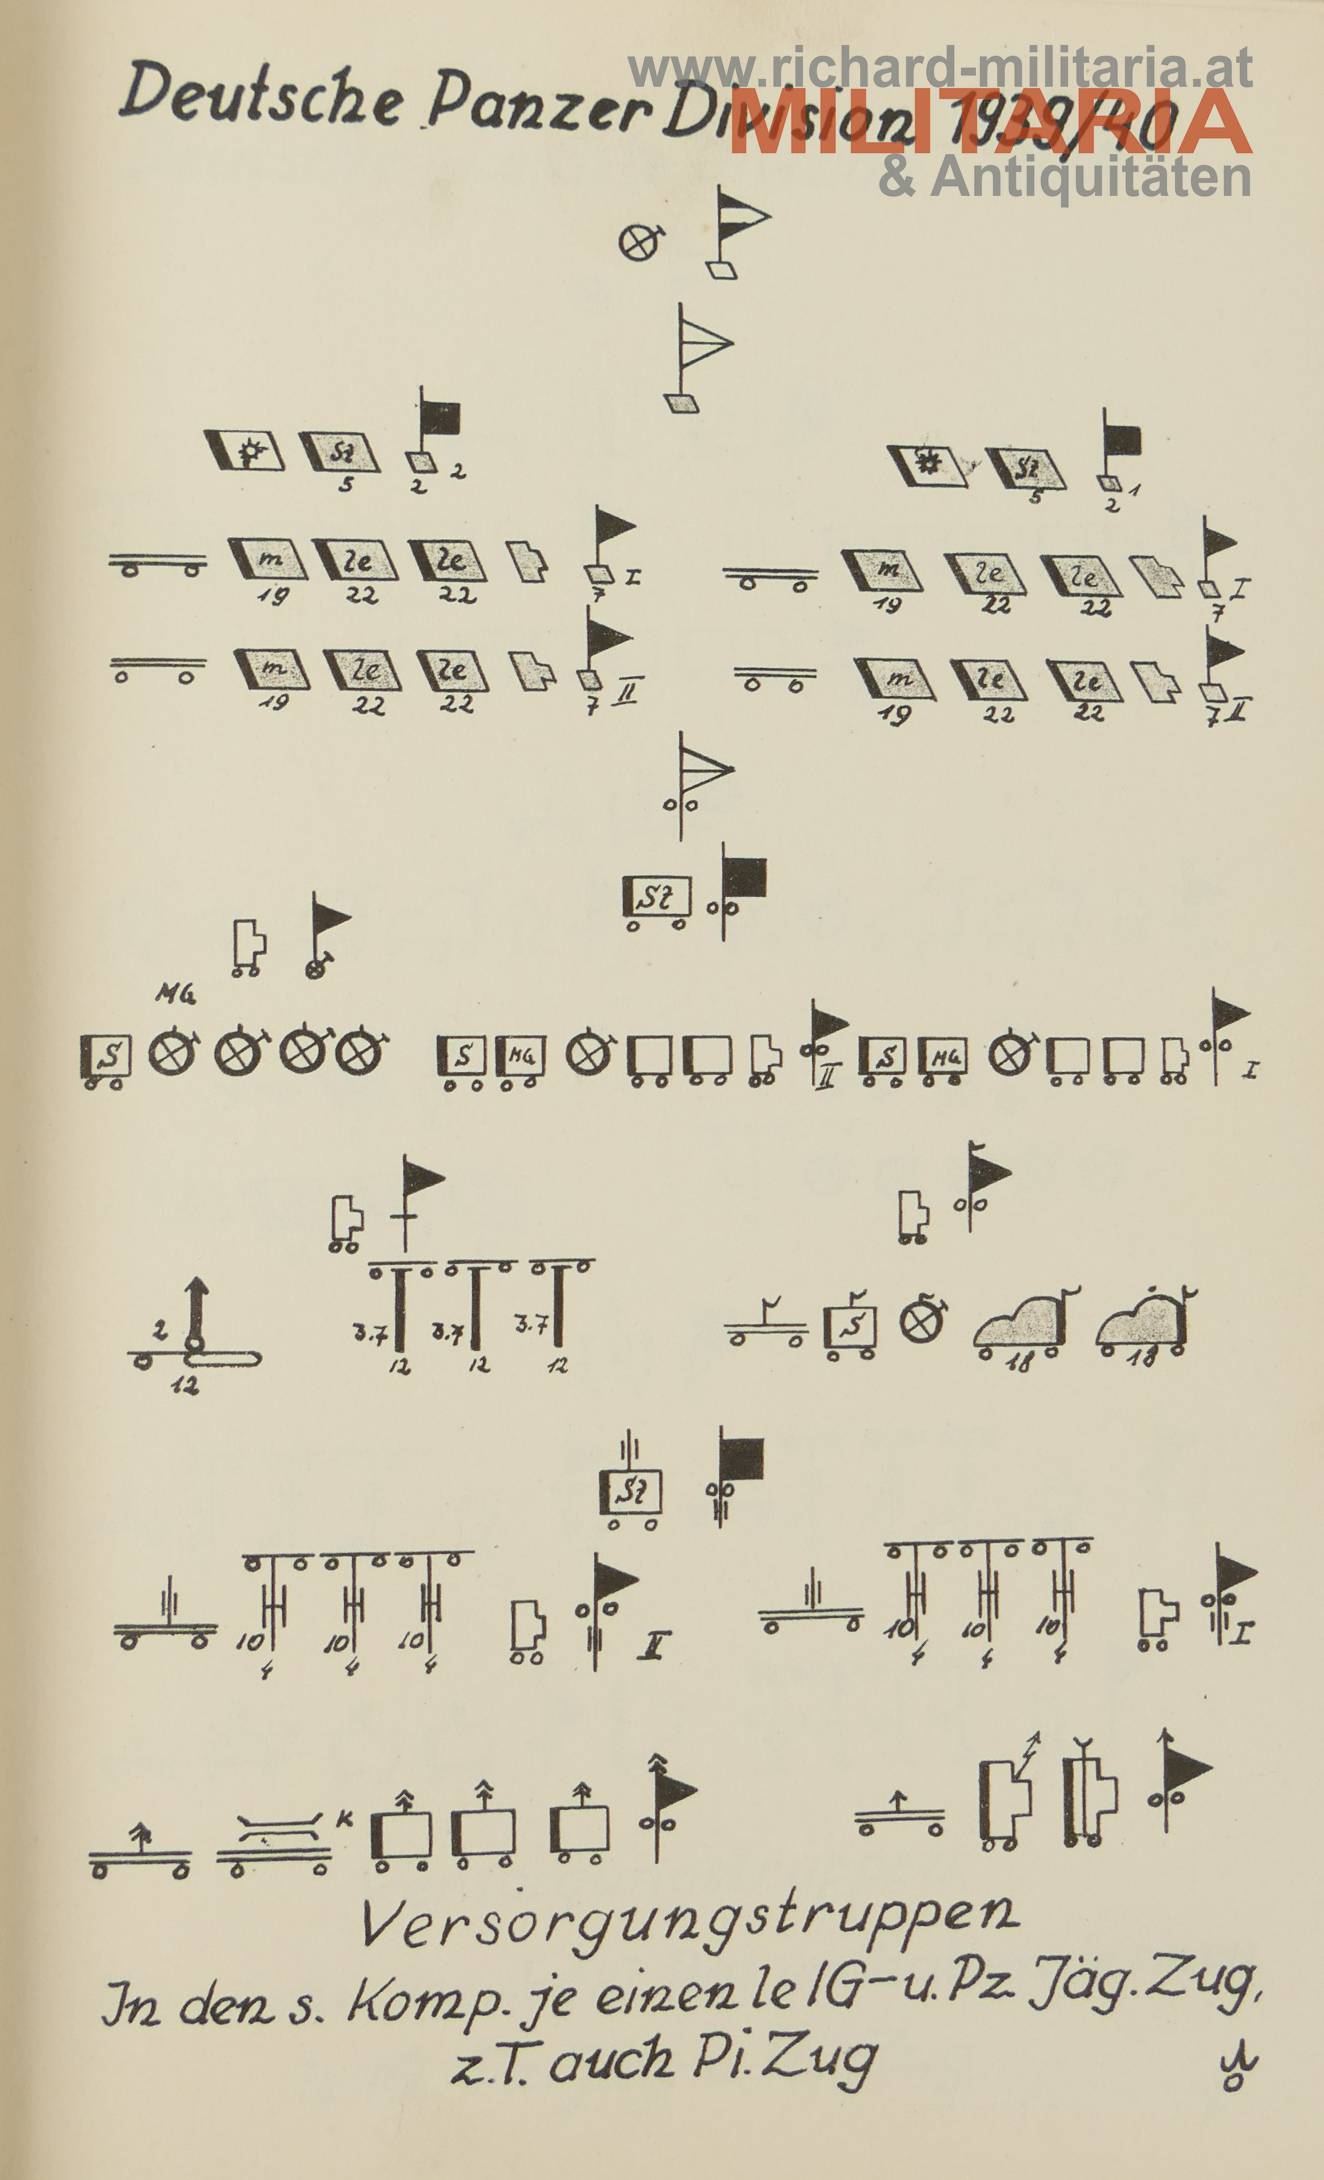 www.richard-militaria.at
MILITARIA
& Antiquitäten
Deutsche Panzer Division 1939/40
Sz
5 2 2
Sz
5 2 1
m le le I
19 22 22 7
m le le I
19 22 22 7
m le le II
19 22 22 7
m le le II
19 22 22 7
SZ
MG
S
S MG II
S MG I
2
12
3.7 3.7 3.7
12 12 12
S
18 18
SZ
10 10 10 II
4 4 4
10 10 10 I
4 4 4
K
Versorgungstruppen
In den s. Komp. je einen le IG-u. Pz. Jäg. Zug,
z.T. auch Pi. Zug